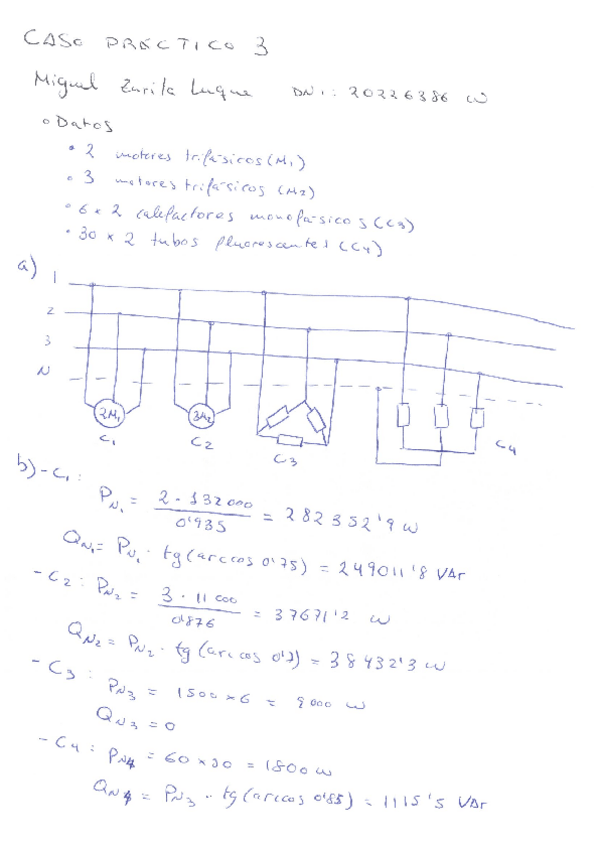 CASO PRÁCTICO 3
Miguel Zurita Luque DNI: 20226386 W
Datos
• 2 motores trifásicos (M1)
• 3 motores trifásicos (M2)
• 6 x 2 calefactores monofásicos (C3)
• 30 x 2 tubos fluorescentes (C4)
a) 1
2
3
N
2M1 3M2
C1 C2 C3 C4
b) - C1:
PN1 = 2 · 132 000 / 0'935 = 282 352'9 W
QN1 = PN1 · tg (arccos 0'75) = 249011'8 VAr
- C2: PN2 = 3 · 11 000 / 0'876 = 37671'2 W
QN2 = PN2 · tg (arccos 0'7) = 38432'3 W
- C3: PN3 = 1500 x 6 = 9000 W
QN3 = 0
- C4: PN4 = 60 x 30 = 1800 W
QN4 = PN3 · tg (arccos 0'85) = 1115'5 VAr